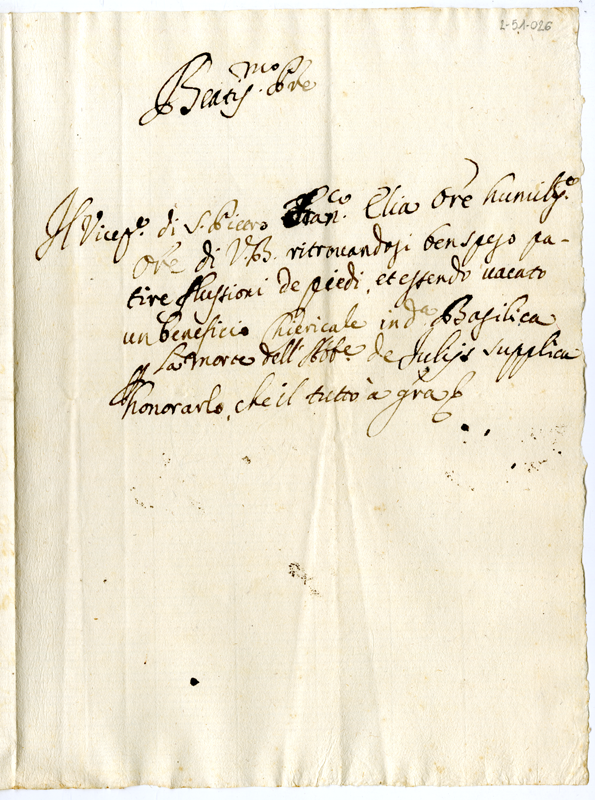 2-51-026
Beatis.mo Pre
Il Vicep.º di S. Pietro Fran.co Elia Ore humilis.º
Ore di V.B. ritrouandosi ben speso pa-
tire flussioni de piedi, et essendo uacato
un beneficio Chiericale in d.a Basilica
p La morte dell'Abb.e de Iulijs supplica
honorarlo, che il tutto à gra&